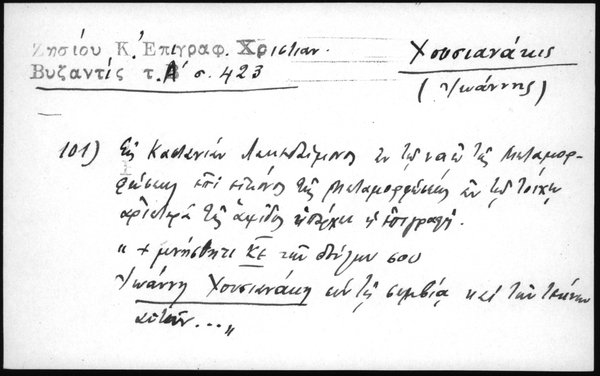 Ζησίου Κ. Ἐπιγραφ. Χριστιαν.
Βυζαντίς τ. Α' σ. 423
Χουσιανάκις
(Ἰωάννης)
101) Εἰς Καστανιάν Λακεδαίμονος ἐν τῷ ναῷ τῆς Μεταμορ-
φώσεως ἐπί εἰκόνος τῆς Μεταμορφώσεως ἐν τῷ τοίχῳ
ἀριστερά τῆς ἀψίδος ὑπάρχει ἡ ἐπιγραφή.
„ + μνήσθητι ΚΕ τῶν δούλων σου
Ἰωάννη Χουσιανάκη σύν τῆς συμβίας καί τῶν τέκνων
αὐτῶν...„